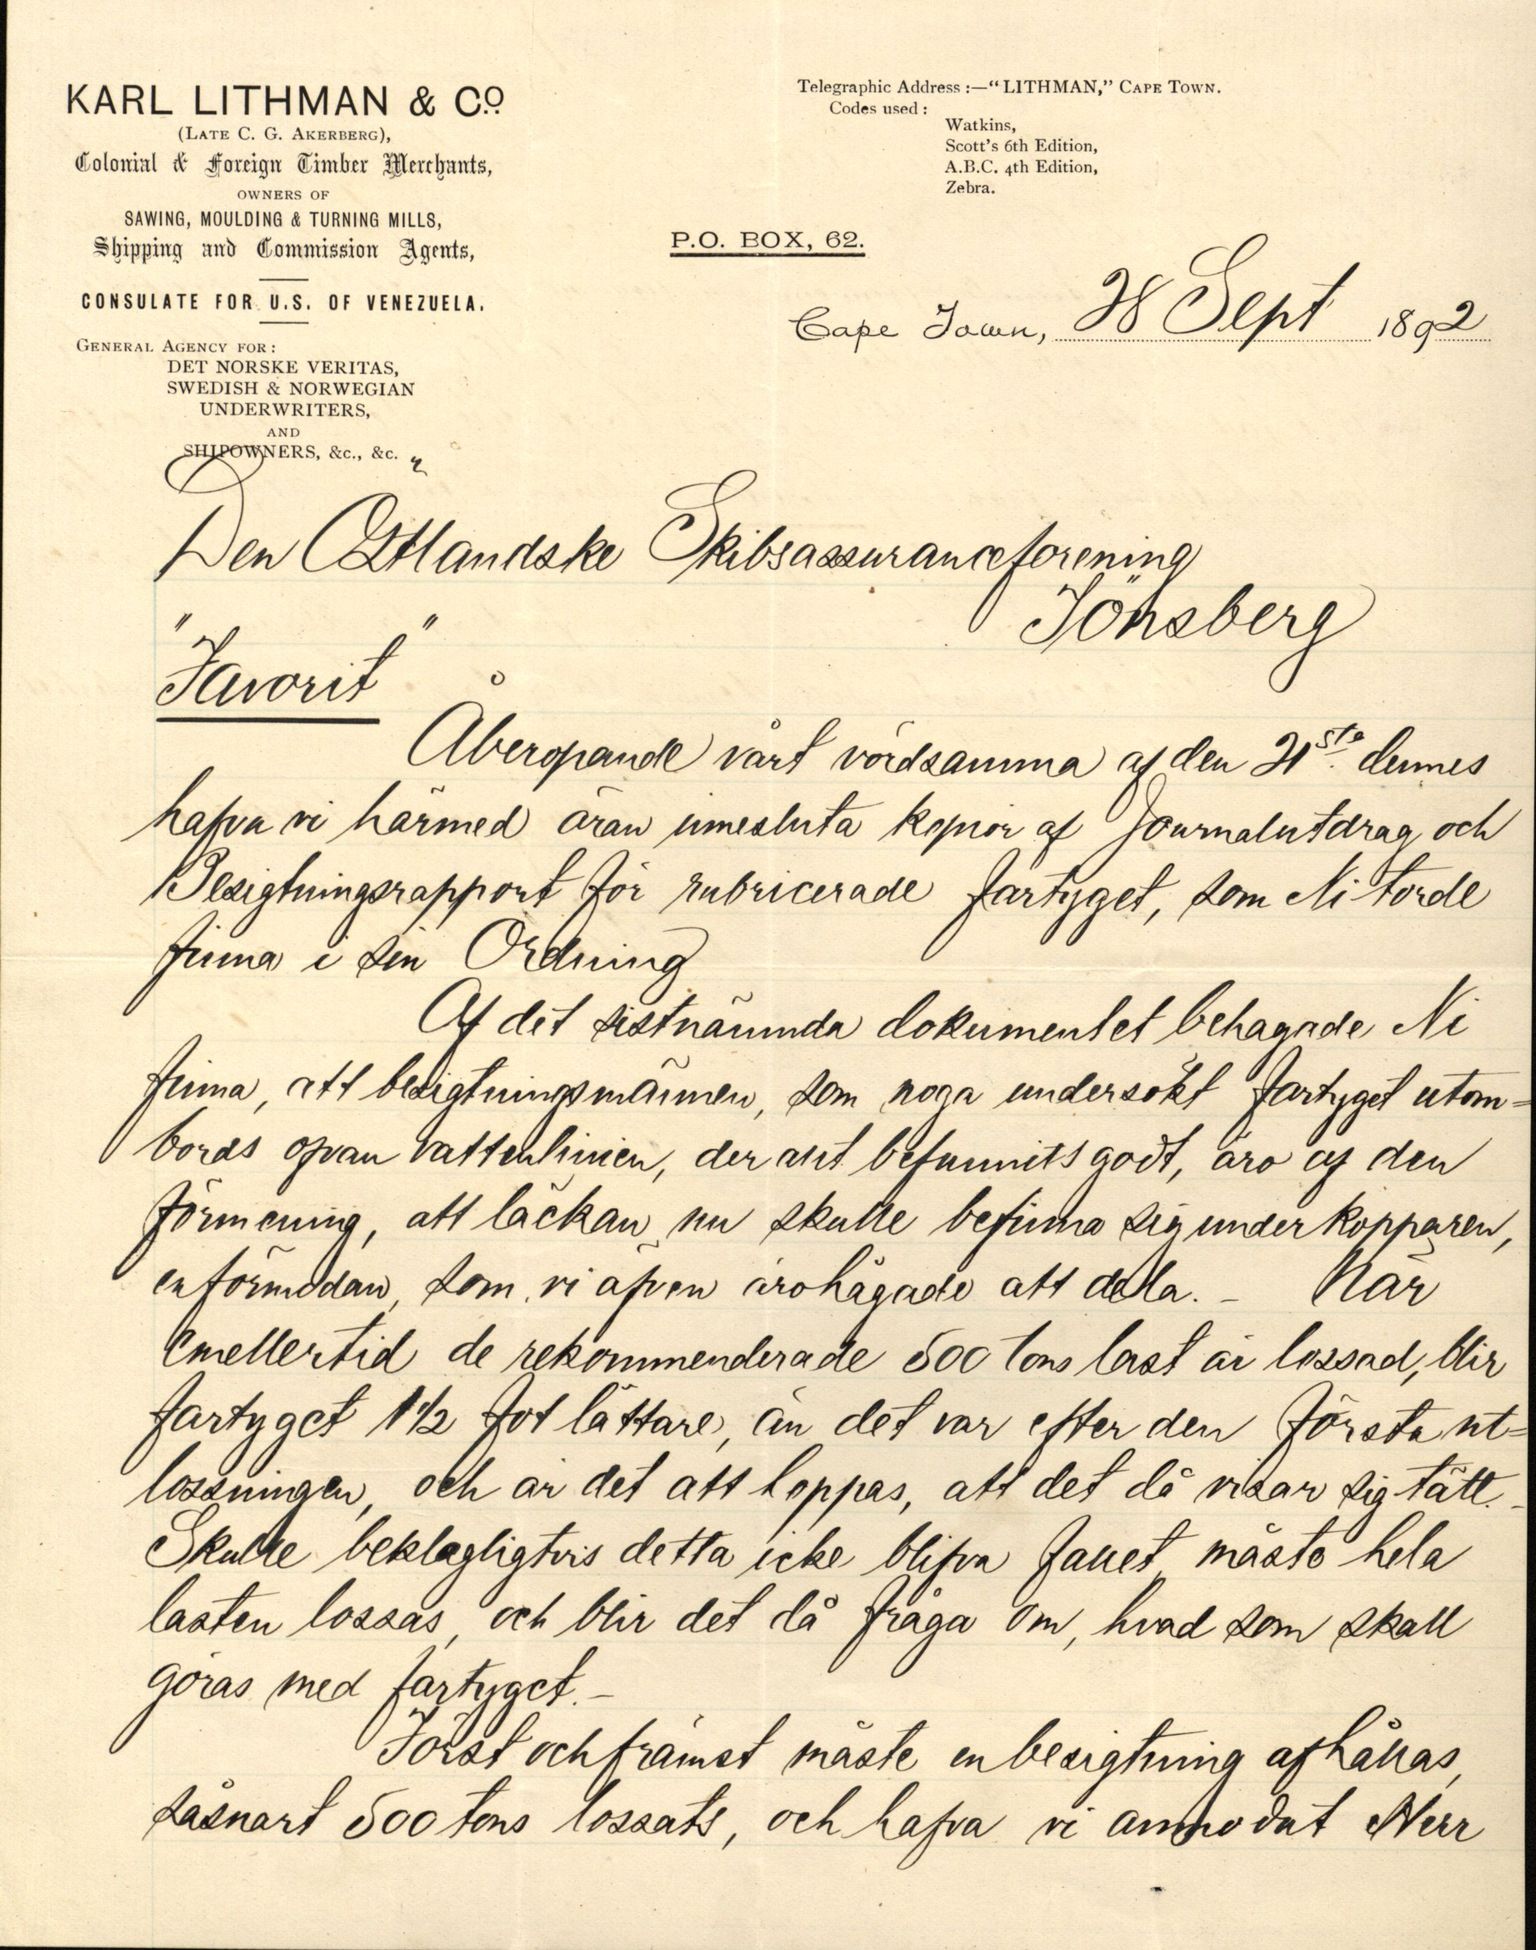 KARL LITHMAN & Co.
(LATE C. G. AKERBERG),
Colonial & Foreign Timber Merchants,
OWNERS OF
SAWING, MOULDING & TURNING MILLS,
Shipping and Commission Agents,
CONSULATE FOR U.S. OF VENEZUELA.
GENERAL AGENCY FOR:
DET NORSKE VERITAS,
SWEDISH & NORWEGIAN
UNDERWRITERS,
AND
SHIPOWNERS, &c., &c.
Telegraphic Address:—"LITHMAN," CAPE TOWN.
Codes used:
Watkins,
Scott's 6th Edition,
A.B.C. 4th Edition,
Zebra.
P.O. BOX, 62.
Cape Town, 28 Sept 1892
Den Östlandske Skibsassuranceforening
Tönsberg
"Favorit"
Åberopande vårt vördsamma af den 21sta dennes
hafva vi härmed äran innesluta kopior af Journalutdrag och
Besigtningsrapport för rubricerade fartyget, som Ni torde
finna i sin Ordning
Af det sistnämnda dokumentet behagade Ni
finna, att besigtningsmännen, som noga undersökt fartyget utom=
bords ofvan vattenlinien, der allt befunnits godt, äro af den
förmening, att läckan nu skulle befinna sig under kopparen,
en förmodan, som vi äfven äro hågade att dela. – När
emellertid de rekommenderade 500 tons last är lossad, blir
fartyget 1 1/2 fot lättare, än det var efter den första ut=
lossningen, och är det att hoppas, att det då visar sig tätt. –
Skulle beklagligtvis detta icke blifva fallet måste hela
lasten lossas, och blir det då fråga om, hvad som skall
göras med fartyget. –
Först och främst måste en besigtning afhållas,
såsnart 500 tons lossats, och hafva vi anmodat Herr